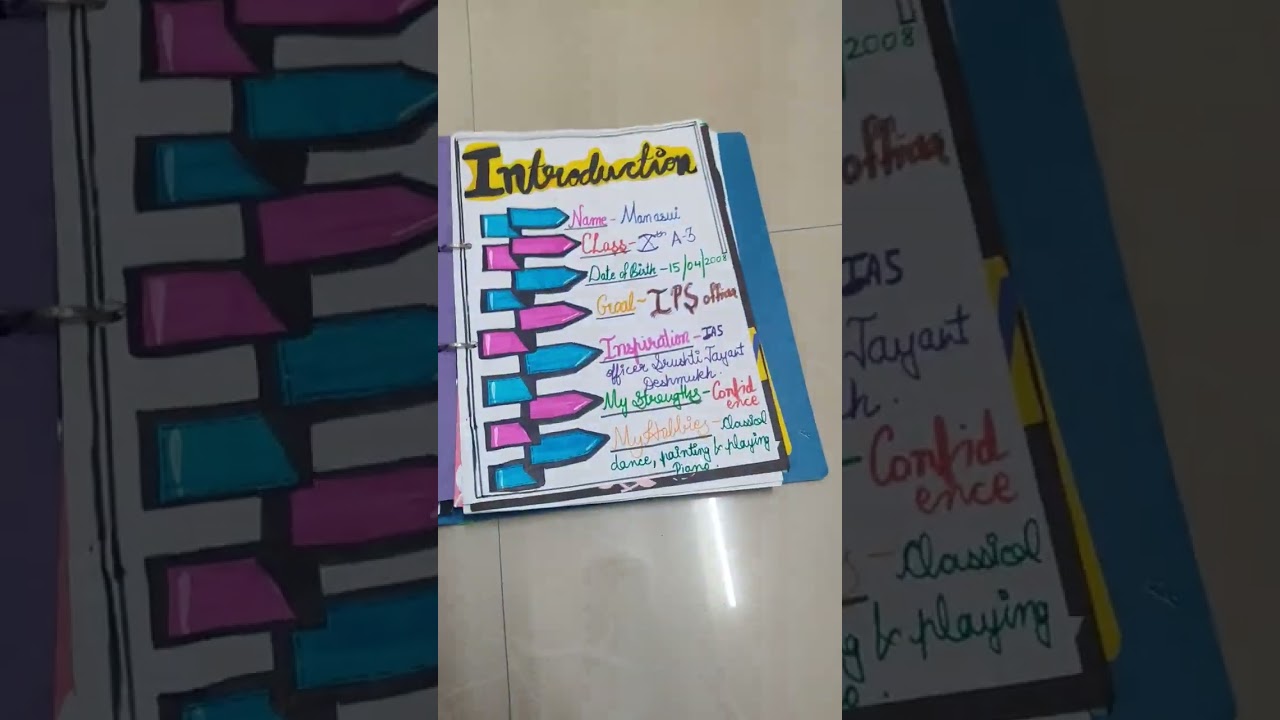 Introduction
Name - Manasvi
Class - Xth A-3
Date of Birth - 15/04/2008
Goal - IPS officer
Inspiration - IAS
officer Srushti Jayant
Deshmukh.
My Strengths - Confid
ence
My Hobbies - Classical
dance, painting & playing
Piano.
2008
officer
IAS
Jayant
h.
- Confid
ence
- Classical
g & playing